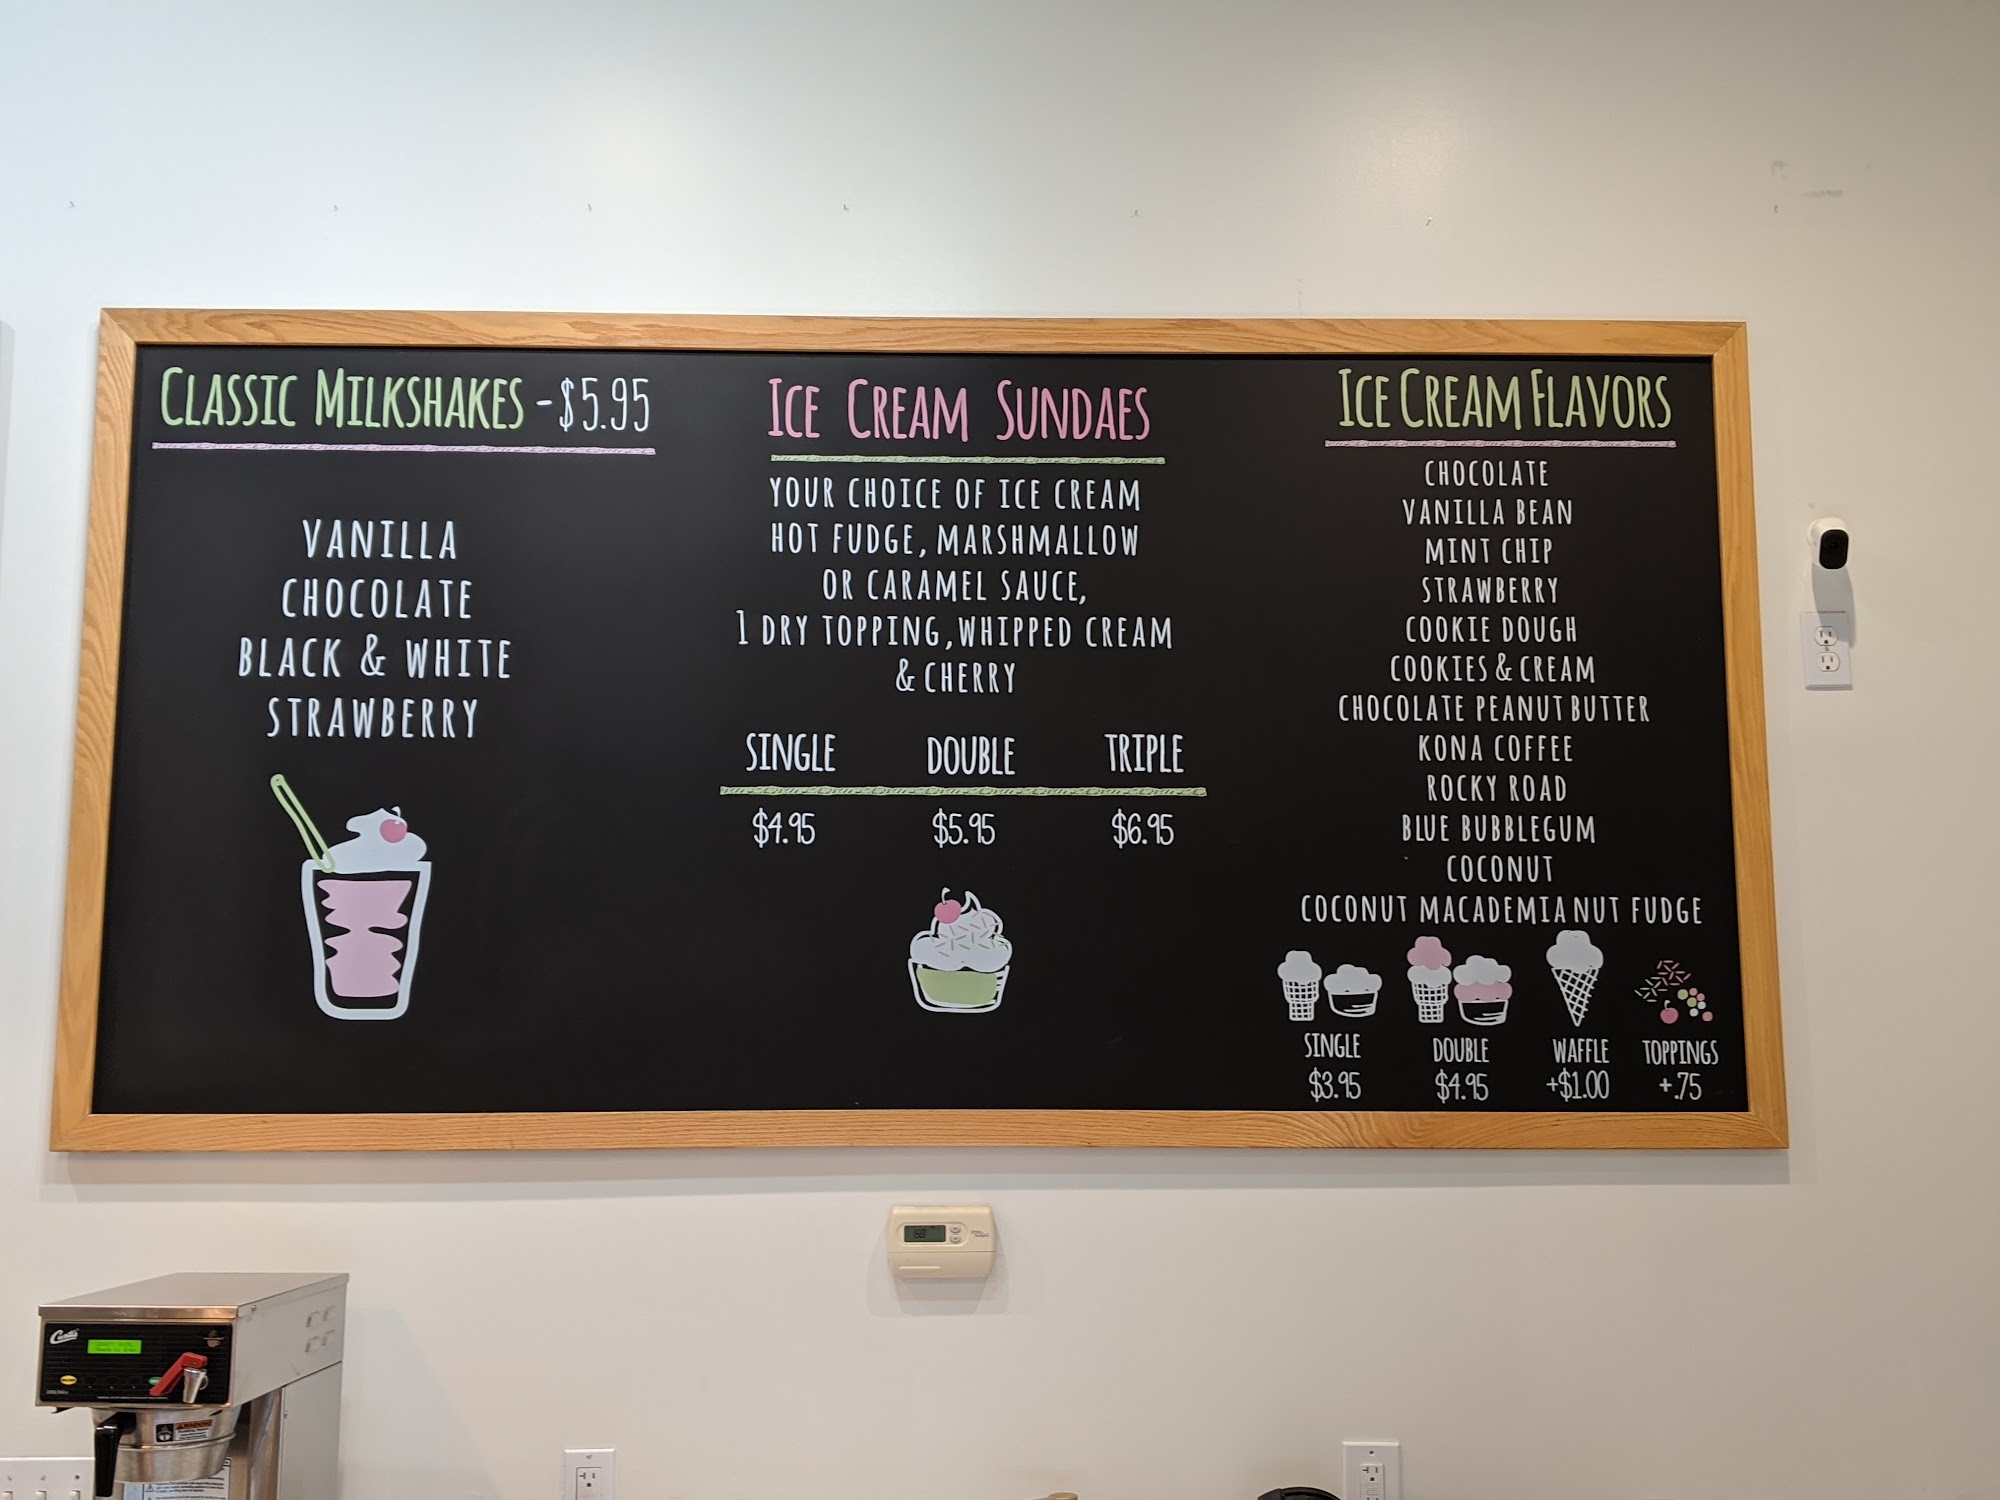 CLASSIC MILKSHAKES -$5.95
VANILLA
CHOCOLATE
BLACK & WHITE
STRAWBERRY
ICE CREAM SUNDAES
YOUR CHOICE OF ICE CREAM
HOT FUDGE, MARSHMALLOW
OR CARAMEL SAUCE,
1 DRY TOPPING, WHIPPED CREAM
& CHERRY
SINGLE DOUBLE TRIPLE
$4.95 $5.95 $6.95
ICE CREAM FLAVORS
CHOCOLATE
VANILLA BEAN
MINT CHIP
STRAWBERRY
COOKIE DOUGH
COOKIES & CREAM
CHOCOLATE PEANUT BUTTER
KONA COFFEE
ROCKY ROAD
BLUE BUBBLEGUM
COCONUT
COCONUT MACADEMIA NUT FUDGE
SINGLE DOUBLE WAFFLE TOPPINGS
$3.95 $4.95 +$1.00 +.75
Curtis
WARNING